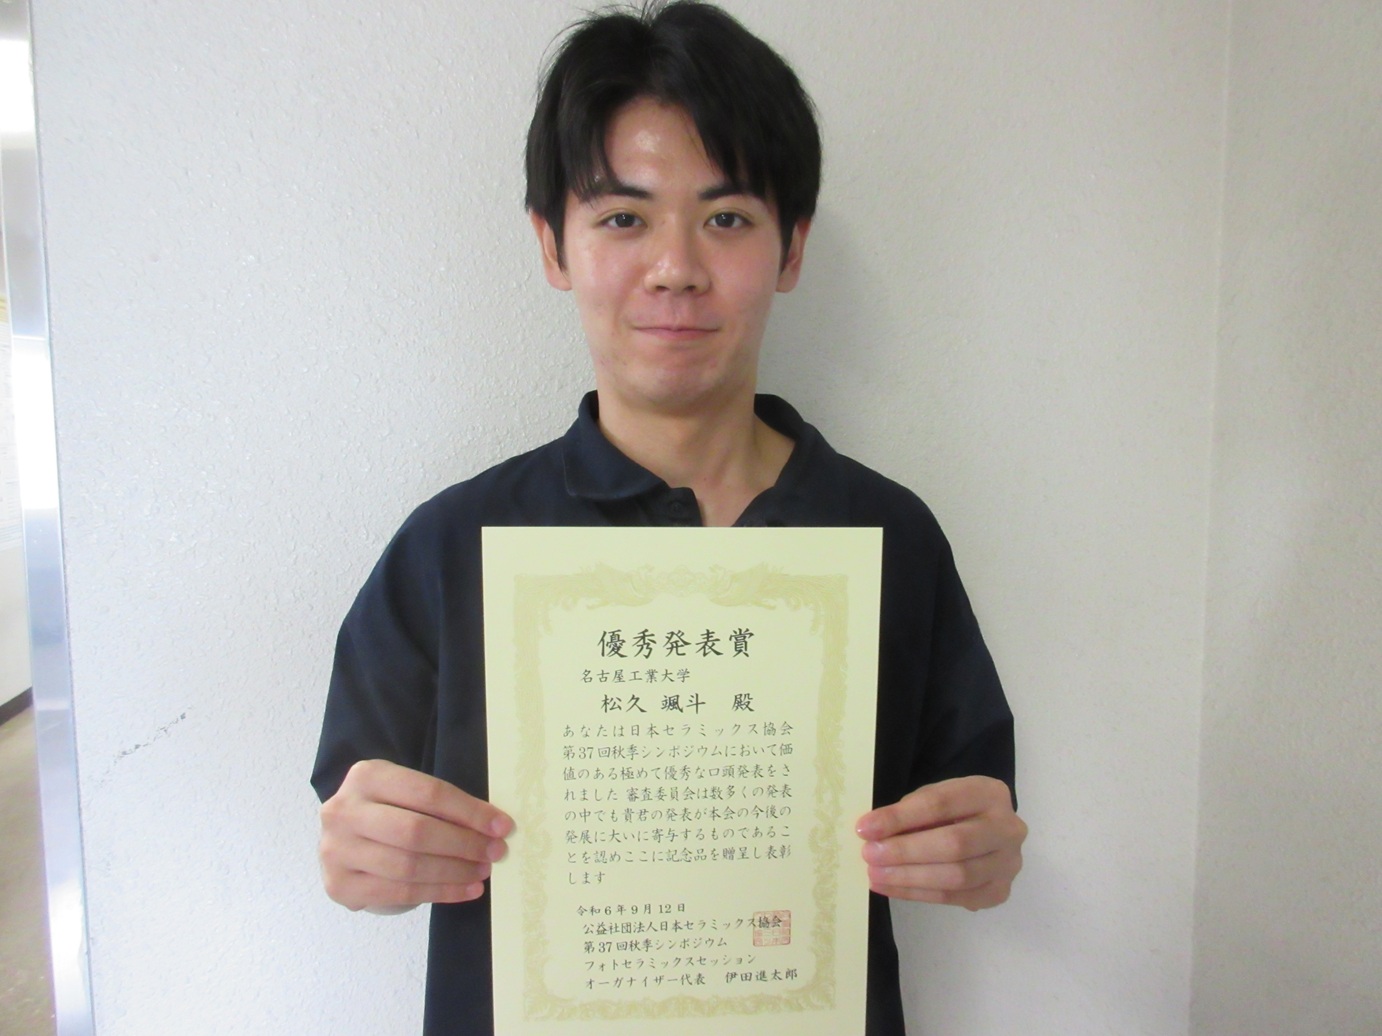 優秀発表賞
名古屋工業大学
松久 颯斗 殿
あなたは日本セラミックス協会
第37回秋季シンポジウムにおいて価
値のある極めて優秀な口頭発表をさ
れました 審査委員会は数多くの発表
の中でも貴君の発表が本会の今後の
発展に大いに寄与するものであるこ
とを認めここに記念品を贈呈し表彰
します
令和6年9月12日
公益社団法人日本セラミックス協会
第37回秋季シンポジウム
フォトセラミックスセッション
オーガナイザー代表 伊田進太郎